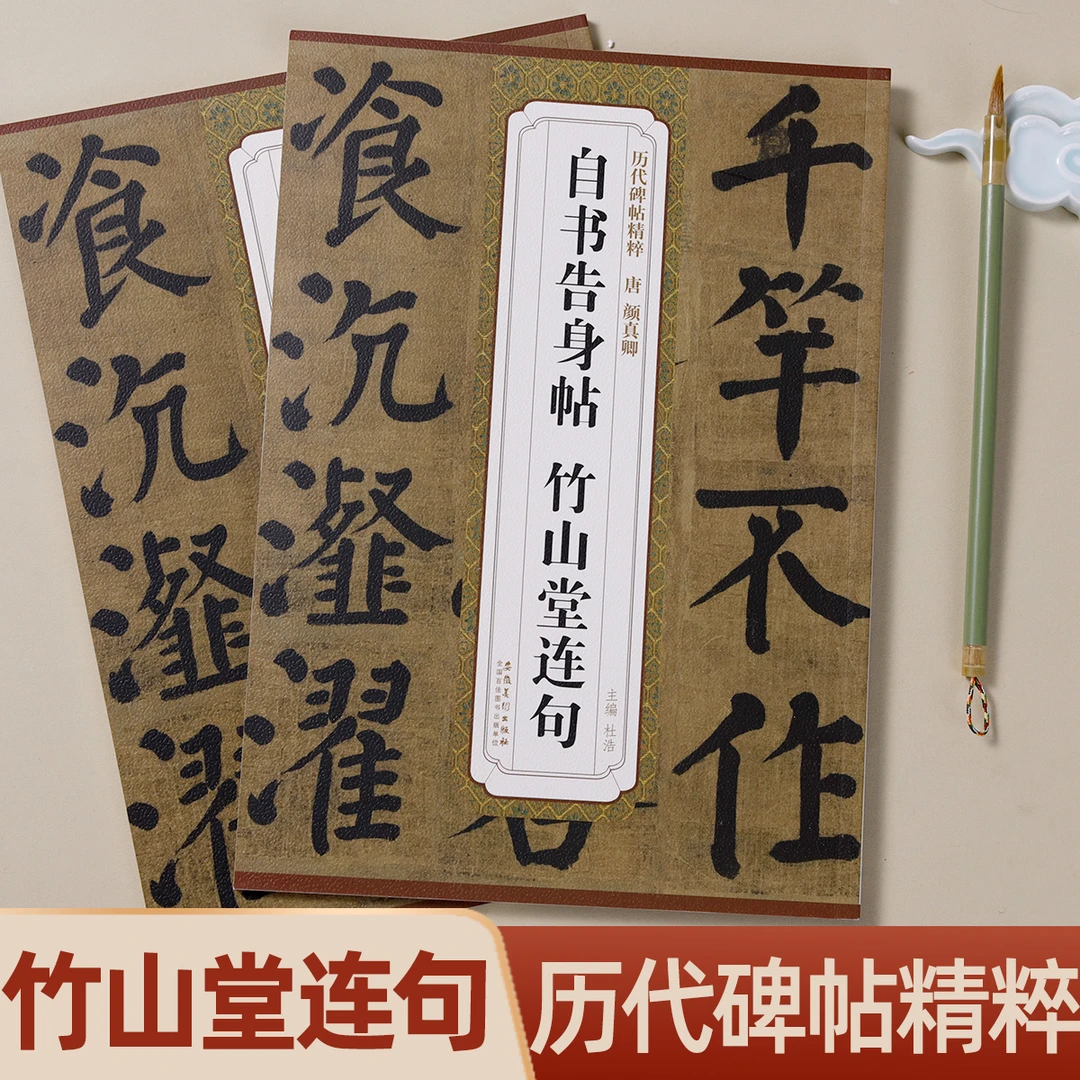 千竿不作
历代碑帖精粹 唐 颜真卿
自书告身帖 竹山堂连句
主编 杜浩
安徽美术出版社
全国百佳图书出版单位
飡沆瀣濯
飡沆瀣濯
竹山堂连句
历代碑帖精粹